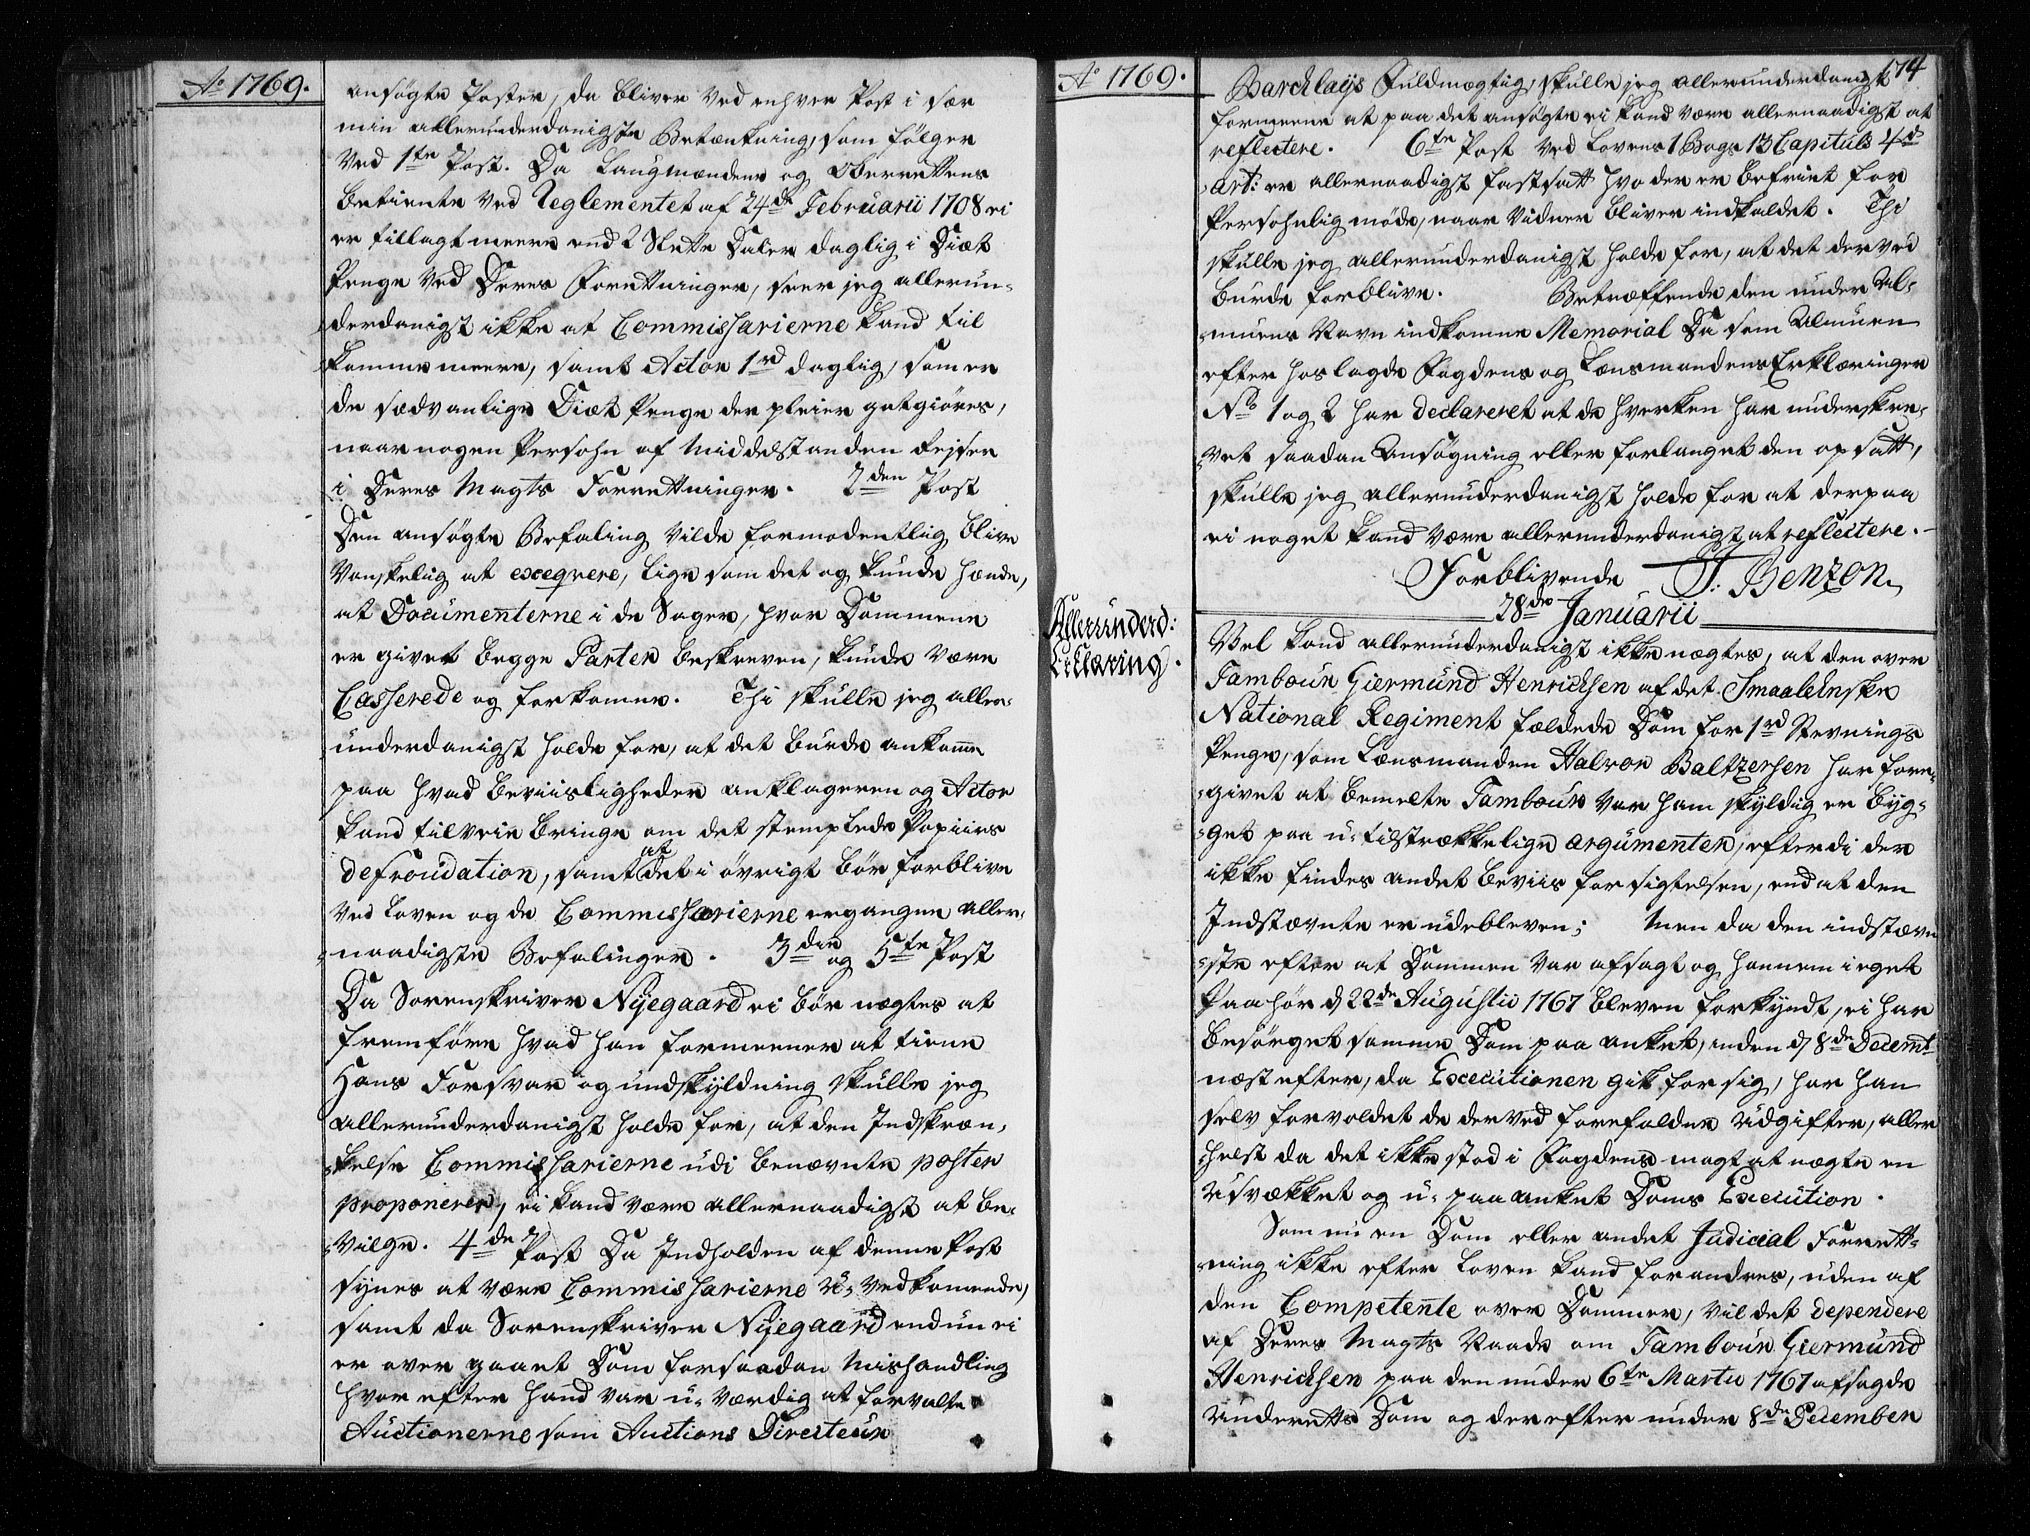 Ao 1769.
ansøgte Poster, da bliver ved enhver Post i sær
min allerunderdanigste Betænkning, som følger
Ved 1ste Post. Da Laugmændene og Oberrettens
betiente ved Reglementet af 24de Februarii 1708 ei
er tillagt meere end 2 Slette Daler daglig i Diæt
Penge ved Deres Forretninger, seer jeg allerun-
derdanigst ikke at Commissarierne kand til
komme meere, samt Actor 1rd daglig, som er
de sædvanlige Diæt Penge der pleier godtgiøres,
naar nogen Persohn af Middelstanden Rejser
i Deres Mayts Forrettninger. 2den Post
Den ansøgte Befaling vilde formodentlig blive
Vanskelig at exeqvere, lige som det og kunde hænde,
at Documenterne i de Sager, hvor Dommene
er givet begge Parter beskreven, kunde være
Casserede og forkomne. Thi skulle jeg aller-
underdanigst holde for, at det burde ankomme
paa hvad beviisligheder anklageren og Actor
kand tilveie bringe om det stemplede Papiirs
defraudation, samt at det i øvrigt bør forblive
ved Loven og de Commissarierne ergangne Aller-
naadigste Befalinger. 3die og 5te Post
Da Sorenskriver Nyegaard ei bør nægtes at
fremføre hvad han formeener at tiene
Hans Forsvar og undskyldning skulle jeg
allerunderdanigst holde for, at den Indskræn-
kelse Commissarierne udi benævnte poster
proponerer, ei kand være allernaadigst at be-
vilge. 4de Post Da Indholden af denne Post
synes at være Commissarierne U-vedkomende,
samt da Sorenskriver Nyegaard endnu ei
er over gaaet Dom for saadan Mishandling
hvor efter hand var u-værdig at forvalte
Auctionerne som Auctions Directeur
Ao 1769.
174
Barchlays Fuldmægtig, skulle jeg allerunderdanigst
formeene at paa det ansøgte ei kand være allernaadigst at
reflectere. 6te Post Ved Lovens 1 Bogs 13 Capituls 4de
art: er allernaadigst fastsatt hvo der er befriet for
Persohnlig møde, naar Vidner bliver indkaldet. Thi
skulle jeg allerunderdanigst holde for, at det derved
burde forblive. Betræffende den under Al-
muens Navn indkomne Memorial Da som Almuen
efter hoslagde Fogdens og Lænsmandens Erklæringer
No 1 og 2 har declareret at de hverken har underskre-
vet saadan Ansøgning eller forlanget den opsatt,
skulle jeg allerunderdanigst holde for at derpaa
ei noget kand være allerunderdanigst at reflectere.
Forblivende J: Benzon.
28de Januarii
Allerunderd:
Erklæring.
Vel kand allerunderdanigst ikke nægtes, at den over
Tambour Giermund Henrichsen af det Smaalehnske
National Regiment fældede Dom for 1rd Stevnings
Penge, som Lænsmanden Halvor Baltzersen har fore-
givet at bemelte Tambour var ham skyldig er byg-
get paa u-tilstrækkelige argumenter, efterdi der
ikke findes andet beviis for sigtelsen, end at den
Indstævnte er udebleven; Men da den indstævn
te efter at Dommen var afsagt og hannem i eget
Paahør d 22de Augustii 1767 bleven forkyndt, ei har
besørget samme Dom paa anket, inden d 8de Decembr
næst efter, da Executionen gik for sig, har han
selv forvoldet de derved forefaldne udgifter, aller
helst da det ikke stod i Fogdens magt at nægte en
usvækket og u-paa anket Doms Execution.
Som nu en Dom eller andet Judicial Forrett-
ning ikke efter Loven kand forandres, uden af
den Competente over Dommer, vil det dependere
af Deres Mayts Naade om Tambour Giermund
Henrichsen paa den under 6te Martii 1767 afsagde
Underretts Dom og derefter under 8de December